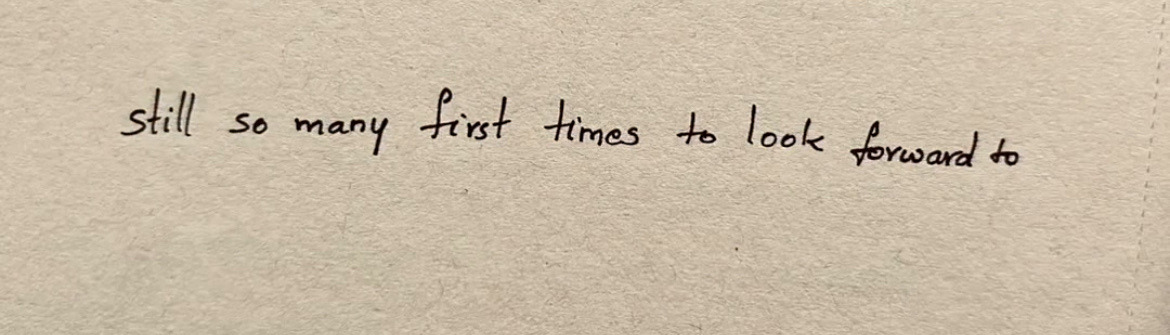 still so many first times to look forward to